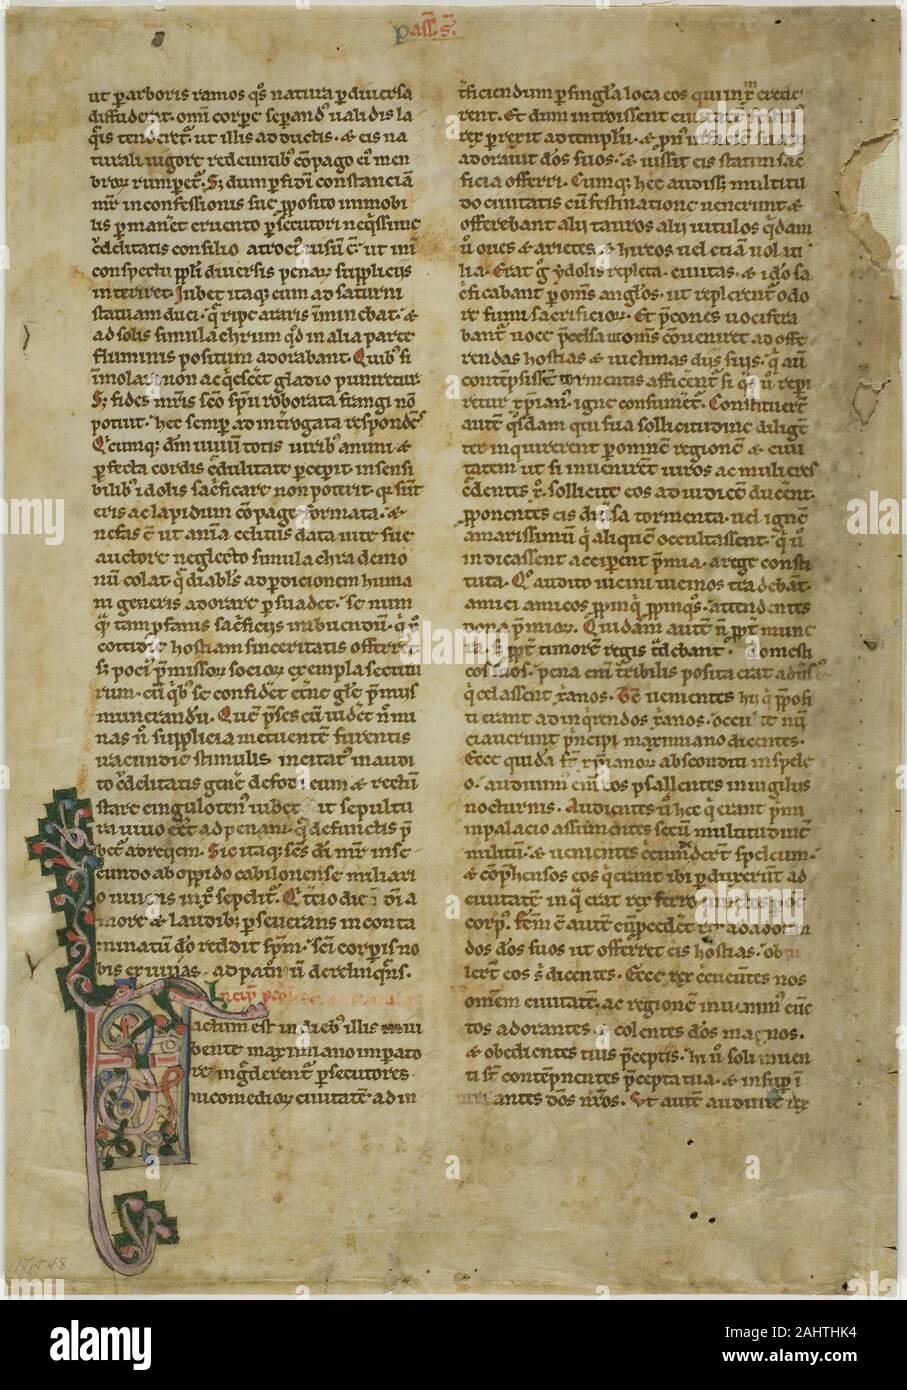 Pass. S.
ut p arboris ramos qs natura p diuersa
diffuderat. omi corpe sepandus ualidis la
qis tenderet. ut illis adductis. & eis na
turali uigore redeuntib; copago ei mem
bror rumperet. S; dum p fidi constancia
mr in confessionis sue pposito immobi
lis pmaneret
cdelitatis consilio atroci usu e. ut im
conspectu ppli diuersis penar suppliciis
interiret. Iubet itaq; eum ad saturni
statuam duci. q ripe araris iminebat. &
ad solis simulachrum qd in alia parte
fluminis positum adorabant. Quib; si
imolare non acqesceret gladio puniretur
S; fides mris sco spu roborata frangi no
potuit. hec semp ad introgata respondes
Qcumq; dm uiuum totis uirib; animi &
pfecta cordis cdulitate pcepit. insensi
bilib; idolis sacficare non poterit. q sunt
eris ac lapidum copage formata. &
nefas e ut ania celitus data uite sue
auctore neglecto simulachra demo
nu colat. q diabls ad pdicionem huma
ni generis adorare psuadet. Se num
q tam pfanis sacficiis imbuendu. q n
cottidie hostiam sinceritatis offerret
S; poci pmissor socior exempla sectutu
rum. cu qb; se confidet etne gle pmiis
munerandu. Que pses cu uidet n mi
nas n supplicia metuente furentis
iracundie stimulis incitat; inaudi
to cdelitatis gnie defodi eum & rectu
stare cingulotenus iubet ut sepultu
ra uiuo eet ad penam. q defunctis p
bet ad reqem. Sic itaq; scs di mr in se
cundo ab oppido cabilonense miliari
o uiuens in xo sepelit.
more & laudib; pseuerans in conta
minatum do reddit spm. Sci corpis no
bis exuuias ad patria derelinqns.
Factum est in dieb; illis iu
bente maximiano imperato
re ingderent psecutores
nicomedior ciuitate ad in
tficiendum p singla loca eos qui in x crede
rent. Et dum introissent ciuitate
rex prexit ad templu. &
adorauit dos suos. & iussit eis statim sac
ficia offerri. Cumq; hec audisset multitu
do ciuitatis cu festinatione uenerunt &
offerebant alii tauros alii uitulos qdam
u oues & arietes & hircos uel etia uolati
lia. Erat g ydolis repleta ciuitas. & ido sa
cficabant p oms anglos. ut replerent odo
re fumi sacrificior. Et pcones uocifera
bant uoce pcelsa ut oms coueniret ad offe
rendas hostias & uictimas diis suis. q au
contepsisset tormentis afficent. si qs u repi
retur xpian. igne consumet. Constituert
aute qsdam qui sua sollicitudine diligt
ter inquirerent p omne regione & ciui
tatem ut si inueniret uiros ac mulieres
cdentes x. sollicite eos ad iudice ducent.
pponentes eis diusa tormenta. uel igne
amarissimu q alique occultassent. q u
indicassent acciperent pmia. a rege consti
tuta. Qo audito uicini uicinos tradebat.
amici amicos ppinq ppinqs. attendentes
dona pmior. Quidam aute n ppt mune
ra. s; ppt timore regis tdebant. domesti
cos suos. pena eni tribilis posita erat
q celassent xanos. Tc uenientes hii q pposi
ti erant ad inqrendos xanos.
ciauerunt pncipi maximiano dicentes.
Ecce quida st xpianor absconditi in spele
o. audiuim eni eos psallentes in uigiliis
nocturnis. Audientes u hec q erant pmi
in palacio assumentes secu multitudine
militu. & uenientes spelcum.
& cophensos eos q erant ibi pduxerut ad
ciuitate in q erat rex ferro
corp. Fem e aute ad adoran
dos dos suos ut offerret eis hostias.
lert eos s dicentes. Ecce rex ceuentes nos
omem ciuitate. ac regione inuenim cuc
tos adorantes & colentes dos magnos.
& obedientes tuis pceptis. hi u soli inuen
ti st contepnentes pcepta tua. & insup i
antes dos nros. Ut aute audiuit rex
N N 48
alamy
alamy
Image ID: 2AHTHK4
www.alamy.com